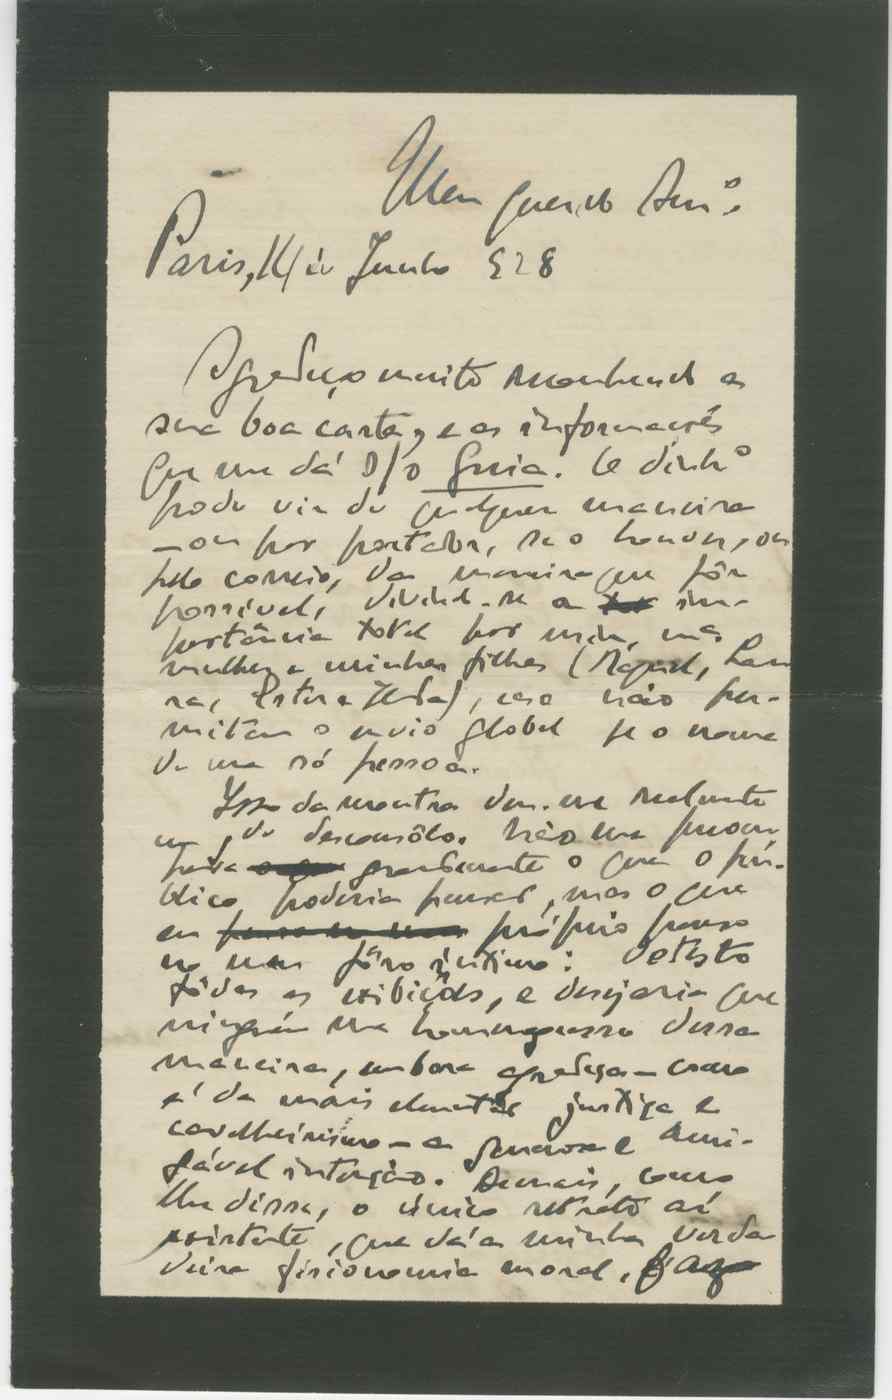 Meu querido Am.º
Paris, 14 de Junho 928
Agradeço muito reconhecido a
sua boa carta, e as informações
que me dá s/o Guia. O dinhº
pode vir de qualquer maneira
— ou por portador, se o houver, ou
pelo correio, da maneira que fôr
possível, dividindo-se a im-
portância total por mim, mª
mulher e minhas filhas (Raquel, Lau
ra, Ester e Hilda), caso não per-
mitam o envio global p/ o nome
de uma só pessoa.
Isso da montra deu-me realmente
um de desconsôlo. Não me preocu
para grandemente o que o pú-
blico poderia pensar, mas o que
eu próprio penso
no meu fôro íntimo: detesto
tôdas as exibições, e desejaria que
ninguém me homenageasse dessa
maneira, embora agradeça — como
é da mais elementar justiça e
cavalheirismo — a generosa e ami-
gável intenção. Demais, como
lhe disse, o único retrato aí
existente, que dá a minha verda
deira fisionomia moral,